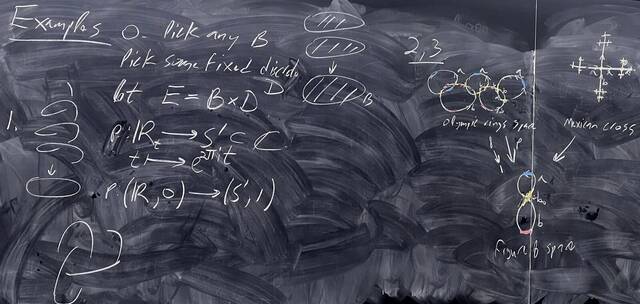 Examples
0. Pick any B
Pick some fixed discrete D
let E = B × D
B
1.
p: ℝ_t → S' ⊂ ℂ
t ↦ e^{2πit}
p (ℝ, 0) → (S', 1)
2,3
Olympic rings space
Mexican cross
p
a
b
Figure 8 space